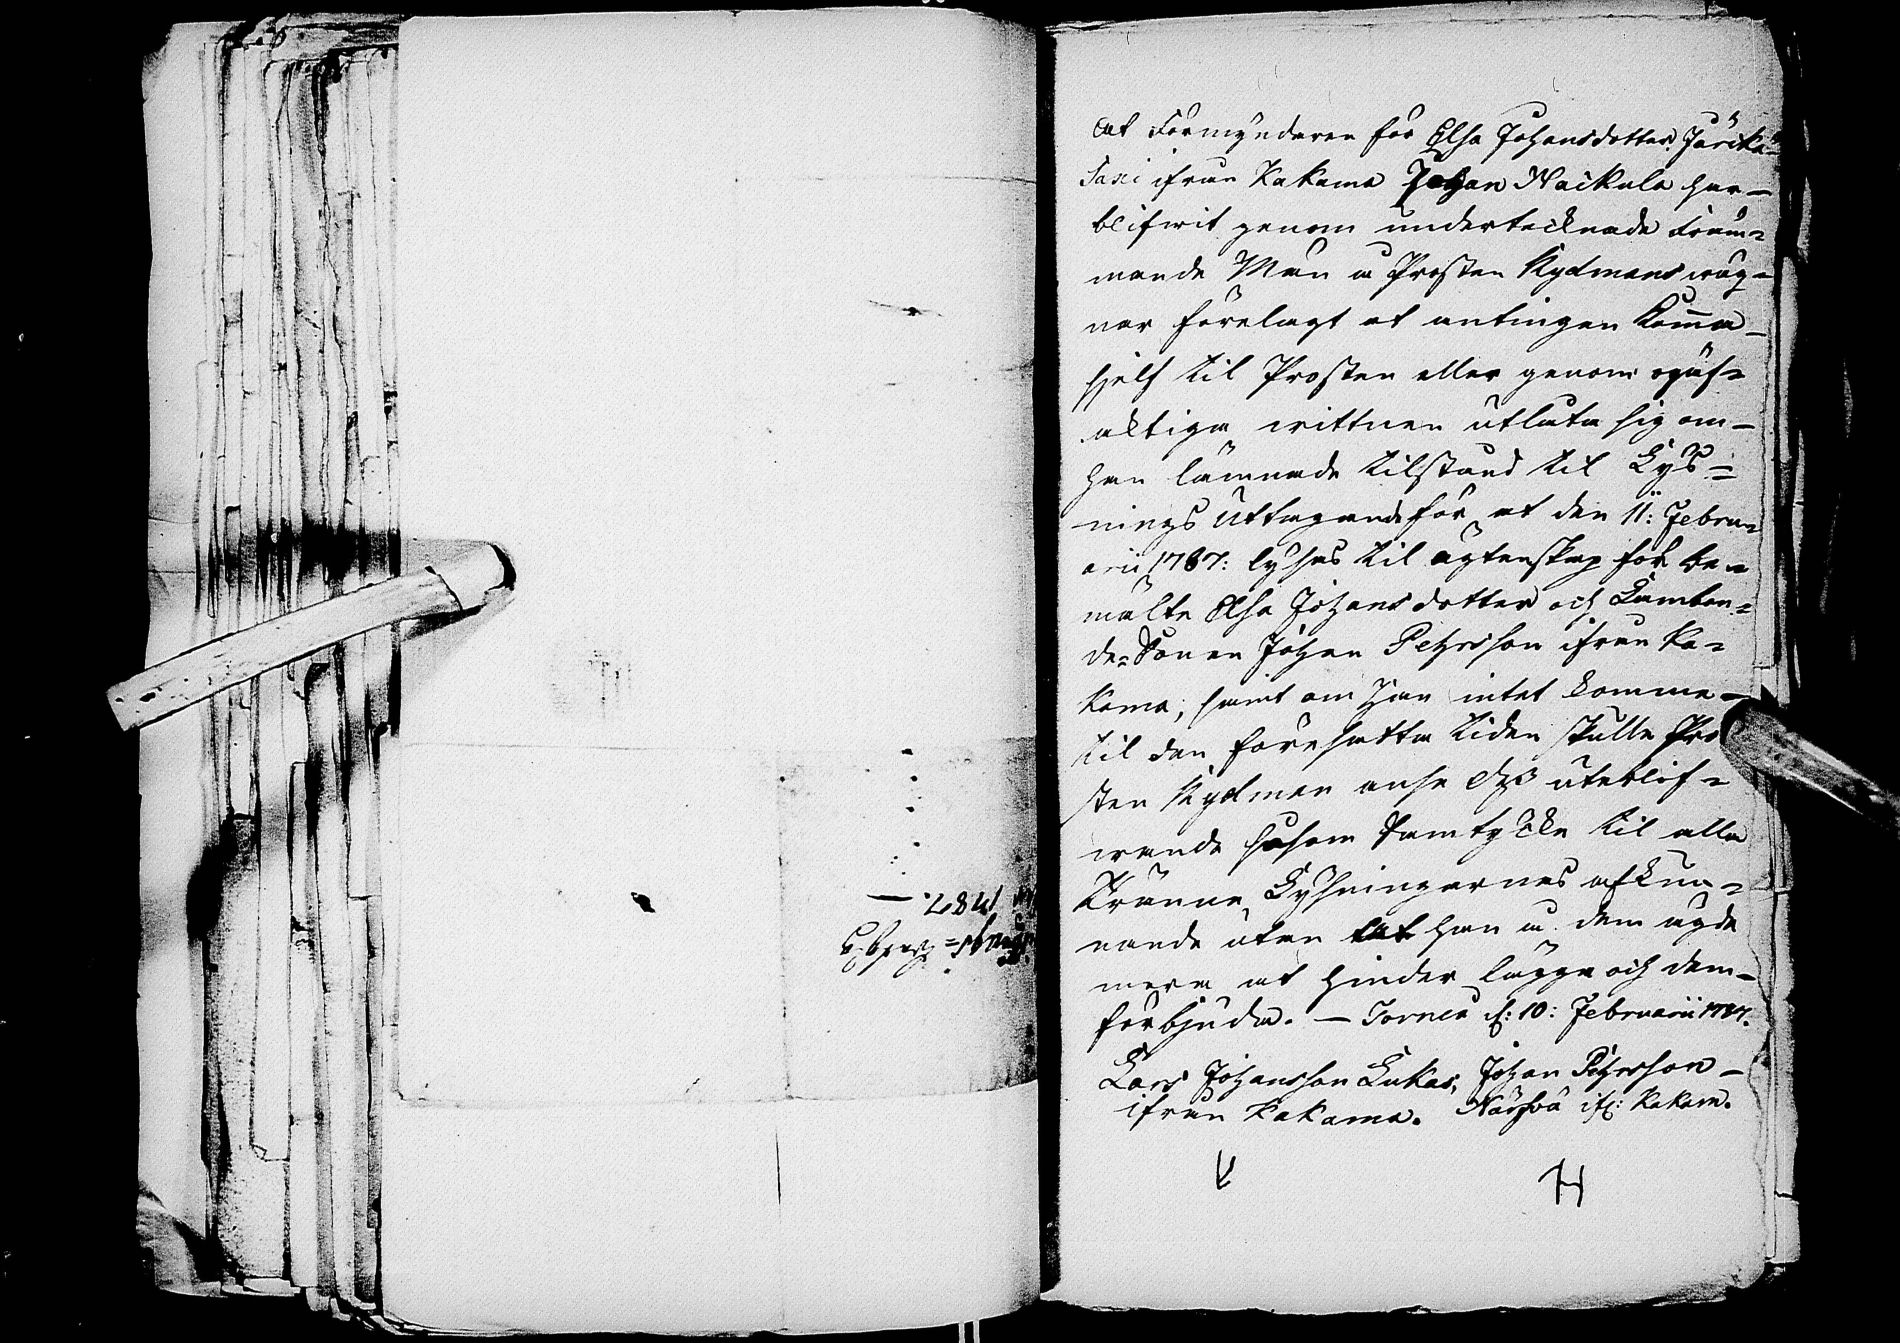 1787. —
At Förmyndaren för Elsa Johansdotter Järika-
Saxi ifrån Kakama Johan Naikula har —
blifwit genom undertecknade Främ-
mande Män å Prosten Rydmans wäg-
nar förelagt at antingen komma —
sjelf til Prosten eller genom ojäf-
aktiga wittnen utlåta sig om —
han lämnade tilstånd til Lys-
nings uttagande för at den 11: Febru-
arii 1787: lyses til ägtenskap för be-
mälte Elsa Johansdotter och Lambon-
de-Sonen Johan Pehrsson ifrån Ka-
kama, samt om han intet komme —
til den föresatta tiden skulle Pro
sten Rydman anse dess uteblif-
wande såsom Samtycke til alla
Tränne Lysningarnes afkun-
nande utan at han å dem ägde
mera at hinder lägga och dem —
förbjuda. — Torneå d: 10: Februarii 1787.
Lars Johansson Lukas, Johan Pehrsson —
ifrån Kakama. Närhvä ifr: Kakam.